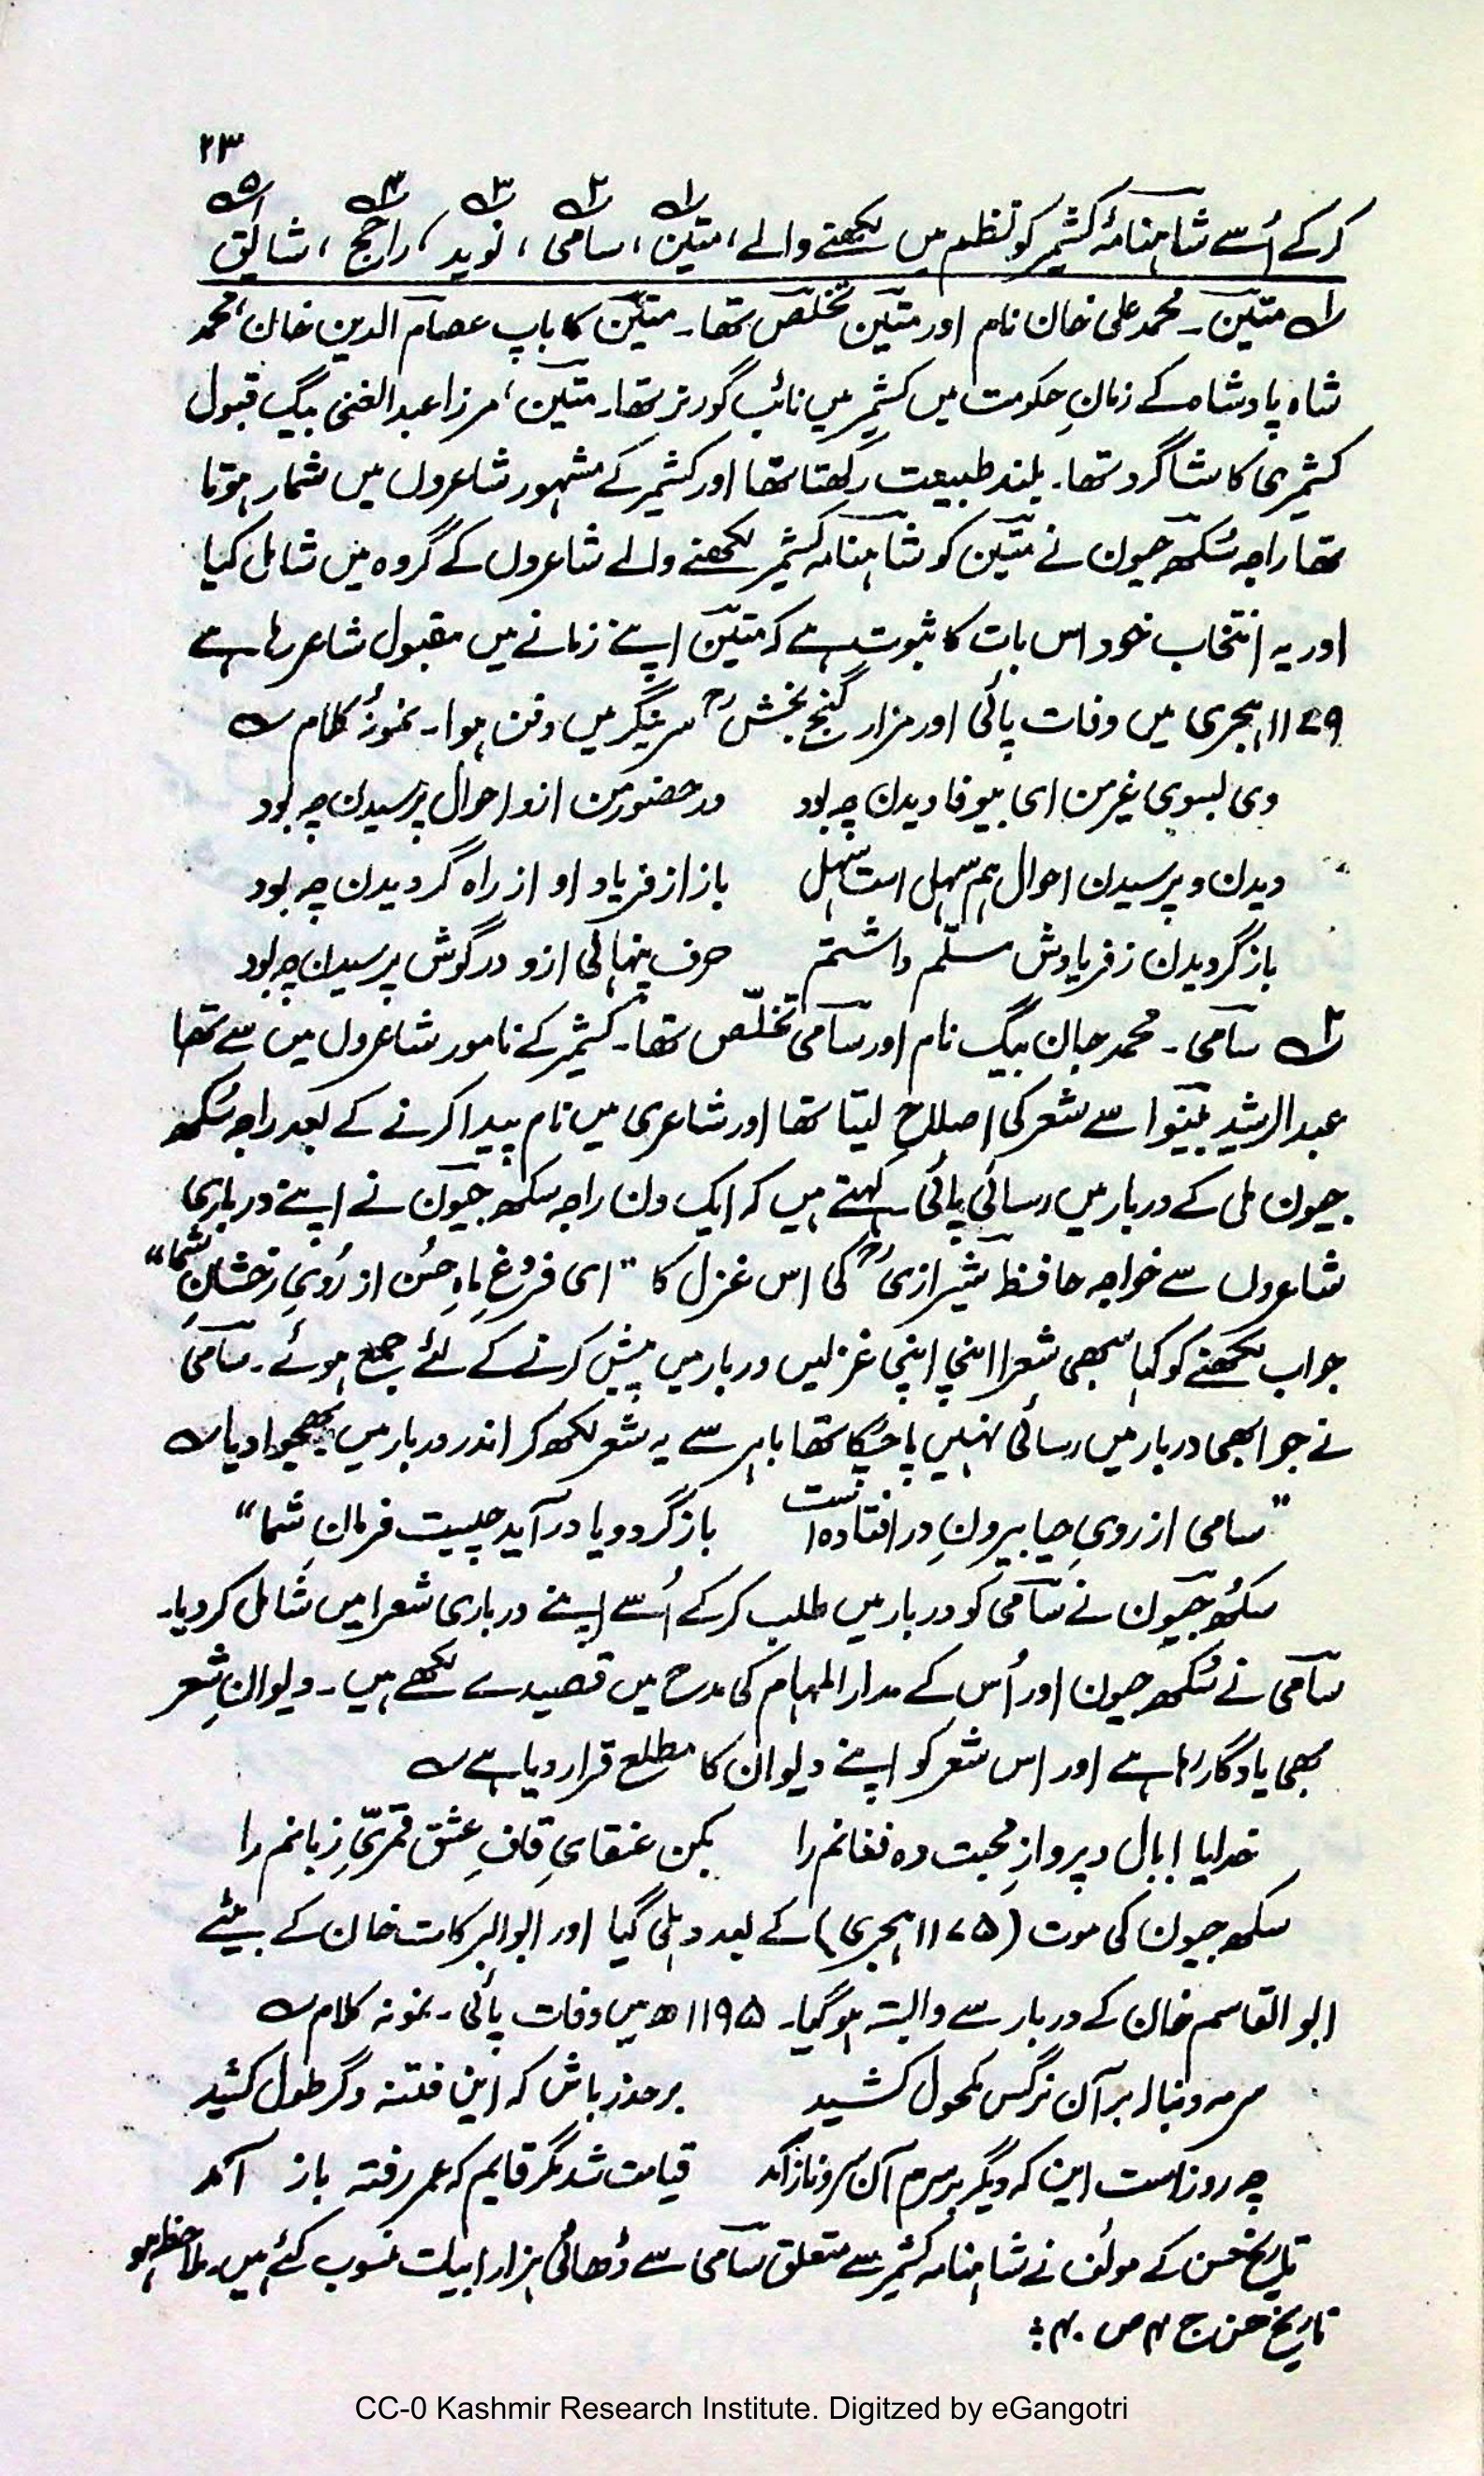 ۲۳
کرکے اُسے شاہنامۂ کشمیر کو نظم میں لکھنے والے، متین۱، سامی۲، نوید۳، راجح۴، شایق۵
۱ متین ۔ محمد علی خان نام اور متین تخلص تھا۔ متین کا باپ عصام الدین خان، محمد
شاہ پادشاہ کے زمانِ حکومت میں کشمیر میں نائب گورنر تھا۔ متین، مرزا عبدالغنی بیگ قبول
کشمیری کا شاگرد تھا۔ بلند طبیعت رکھتا تھا اور کشمیر کے مشہور شاعروں میں شمار ہوتا
تھا راجہ سُکھ جیون نے متین کو شاہنامہ کشمیر لکھنے والے شاعروں کے گروہ میں شامل کیا
اور یہ انتخاب خود اس بات کا ثبوت ہے کہ متین اپنے زمانے میں مقبول شاعر رہا ہے
۱۱۷۹ ہجری میں وفات پائی اور مزار گنج بخشؒ سرینگر میں دفن ہوا۔ نمونۂ کلام ؎
دی بسوی غیر من ای بیوفا دیدن چہ بود در حضور من ازو احوال پرسیدن چہ بود
دیدن و پرسیدن احوال ہم سہل است سہل باز از فریاد او از راہ گردیدن چہ بود
باز گردیدن ز فریادش مسلّم داشتم حرف پنہانی ازو در گوش پرسیدن چہ بود
۲ سامی ۔ محمد جان بیگ نام اور سامی تخلّص تھا۔ کشمیر کے نامور شاعروں میں سے تھا
عبدالرشید بینوا سے شعر کی اصلاح لیتا تھا اور شاعری میں نام پیدا کرنے کے بعد راجہ سُکھ
جیون مل کے دربار میں رسائی پائی۔ کہتے ہیں کہ ایک دن راجہ سکھ جیون نے اپنے درباری
شاعروں سے خواجہ حافظ شیرازیؒ کی اس غزل کا "ای فروغِ ماہِ حُسن از رُویِ رخشانِ شما"
جواب لکھنے کو کہا سبھی شعرا اپنی اپنی غزلیں دربار میں پیش کرنے کے لئے جمع ہوئے۔ سامی
نے جو ابھی دربار میں رسائی نہیں پا چُکا تھا باہر سے یہ شعر لکھ کر اندر دربار میں بھجوا دیا ؎
"سامی از رویِ حیا بیرونِ در افتادہ است باز گردد یا در آید چیست فرمانِ شما"
سُکھ جیون نے سامی کو دربار میں طلب کرکے اُسے اپنے درباری شعرا میں شامل کر دیا۔
سامی نے سُکھ جیون اور اُس کے مدار المہام کی مدح میں قصیدے لکھے ہیں۔ دیوانِ شعر
بھی یادگار رہا ہے اور اس شعر کو اپنے دیوان کا مطلع قرار دیا ہے ؎
خدایا! بال و پروازِ محبت دہ فغانم را بکن عنقایِ قافِ عشق قمریِّ زبانم را
سکھ جیون کی موت (۱۱۷۵ ہجری) کے بعد دہلی گیا اور ابوالبرکات خان کے بیٹے
ابوالقاسم خان کے دربار سے وابستہ ہو گیا۔ ۱۱۹۵ھ میں وفات پائی۔ نمونہ کلام ؎
سرمہ دنبالہ بر آن نرگس مکحول کشید بر حذر باش کہ این فتنہ دگر طول کشید
چہ روز است این کہ دیگر بر سرم آن سرو ناز آمد قیامت شد مگر قایم کہ عمر رفتہ باز آمد
تاریخ حسن کے مولف نے شاہنامہ کشمیر سے متعلق سامی سے ڈھائی ہزار ابیات منسوب کئے ہیں۔ ملاحظہ ہو
تاریخ حسن ج ۴ ص ۴۰ :
CC-0 Kashmir Research Institute. Digitzed by eGangotri